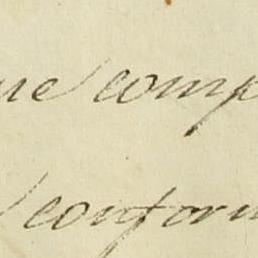 ue comp
conform